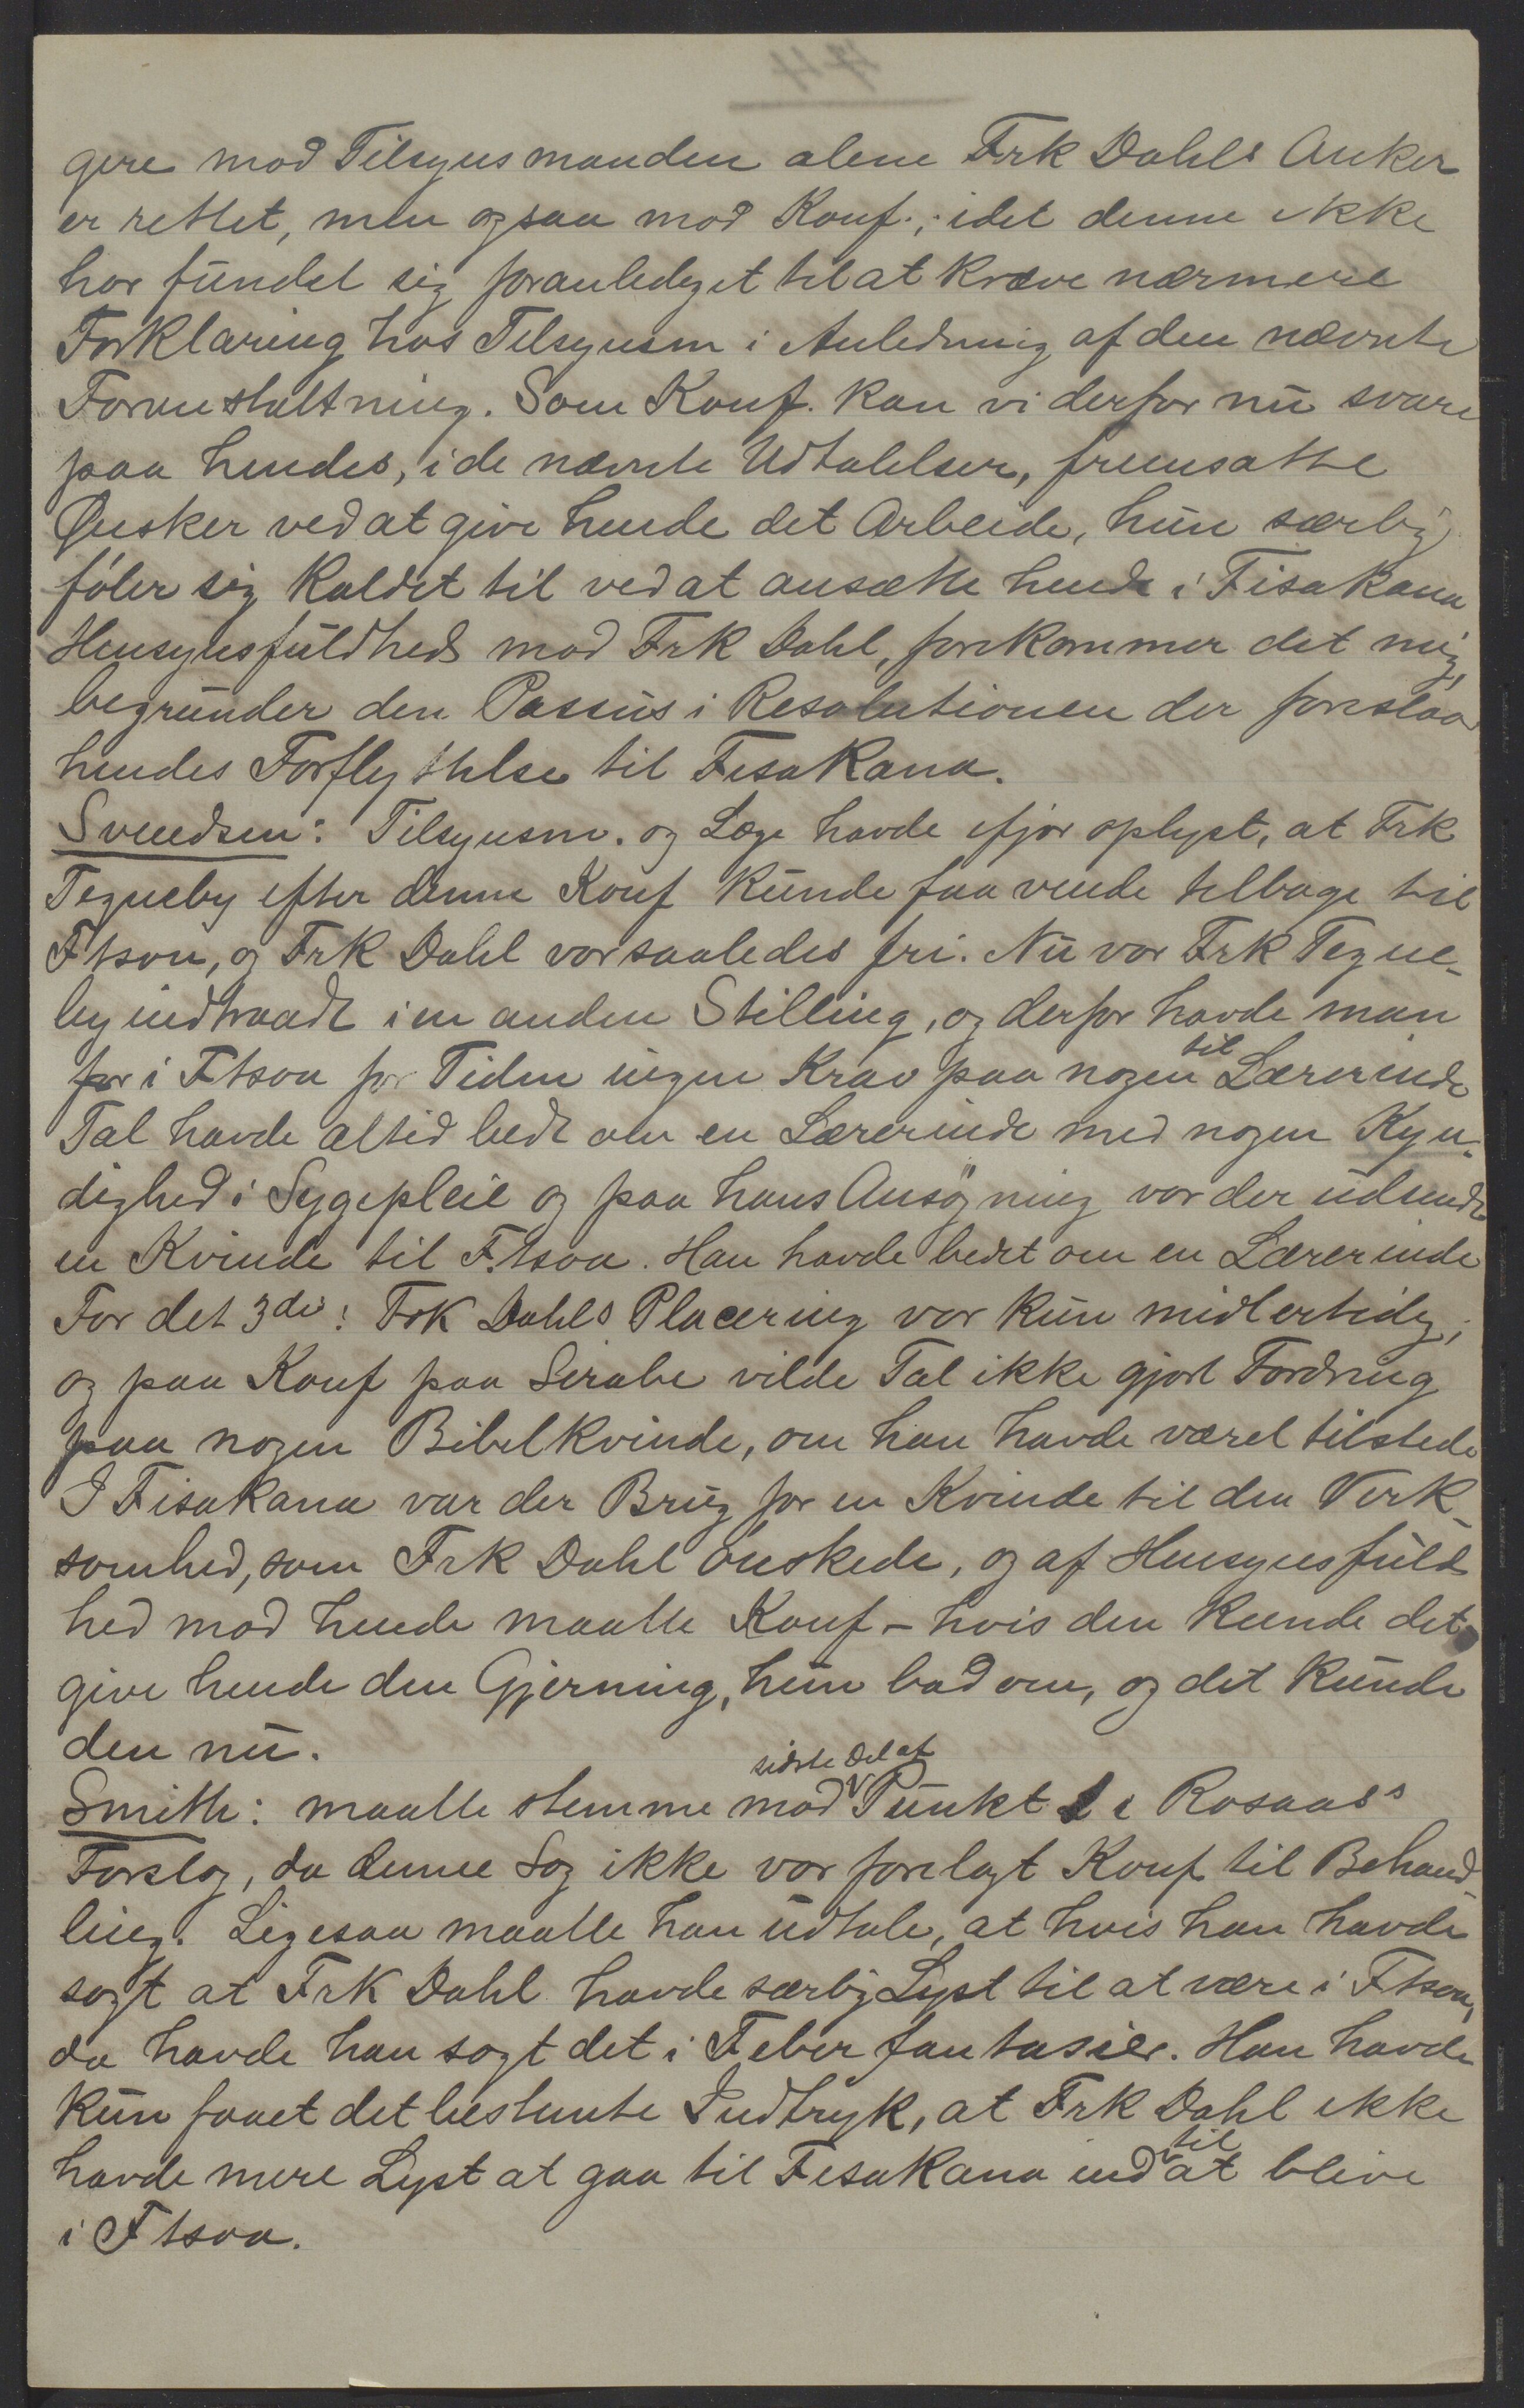 gere mod Tilsynsmanden alene Frk Dahls Anker
er rettet, men ogsaa mod Konf.; idet denne ikke
har fundet sig foranlediget til at kræve nærmere
Forklaring hos Tilsynsm i Anledning af den nævnte
Foranstaltning. Som Konf. kan vi derfor nu svare
paa hendes, i de nævnte Udtalelser, fremsatte
Ønsker ved at give hende det Arbeide, hun særlig
føler sig kaldet til ved at ansætte hende i Fisakana
Hensynsfuldheds mod Frk Dahl, forekommer det mig,
begrunder den Passus i Resolutionen der foreslaa
hendes Forflyttelse til Fisakana.
Svendsen: Tilsynsm. og Læge havde ifjor oplyst, at Frk
Tegneby efter denne Konf kunde faa vende tilbage til
Ftsoa, og Frk Dahl var saaledes fri. Nu var Frk Tegne-
by indtraadt i en anden Stilling, og derfor havde man
for i Ftsoa for Tiden ingen Krav paa nogen til Lærerinde
Tal havde altid bedt om en Lærerinde med nogen Kyn-
dighed i Sygepleie og paa hans Ansøgning var der udsendt
en Kvinde til F.tsoa. Han havde bedet om en Lærerinde
For det 3die: Frk Dahls Placering var kun midlertidig;
og paa Konf paa Sirabe vilde Tal ikke gjort Fordring
paa nogen Bibelkvinde, om han havde været tilstede
I Fisakana var der Brug for en Kvinde til den Virk-
somhed, som Frk Dahl ønskede, og af Hensynsfuld
hed mod hende maatte Konf – hvis den kunde det
give hende den Gjerning, hun bad om, og det kunde
den nu.
Smith: maatte stemme mod sidste Del af Punkt 1 i Rosaas's
Forslag, da denne Sag ikke var forelagt Konf til Behand-
ling. Ligesaa maatte han udtale, at hvis han havde
sagt at Frk Dahl havde særlig Lyst til at være i Ftsoa,
da havde han sagt det i Feberfantasier. Han havde
kun faaet det bestemte Indtryk, at Frk Dahl ikke
havde mere Lyst at gaa til Fisakana end til at blive
i Ftsoa.